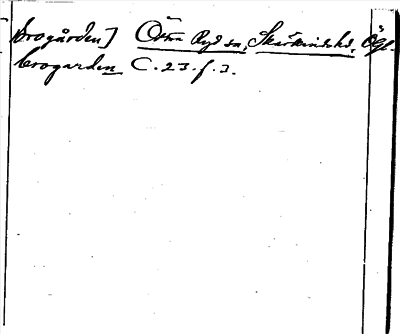 Brogården] Östra Ryd sn, Skärkindshd, Ögl.
brogarden C. 23. f. 3.